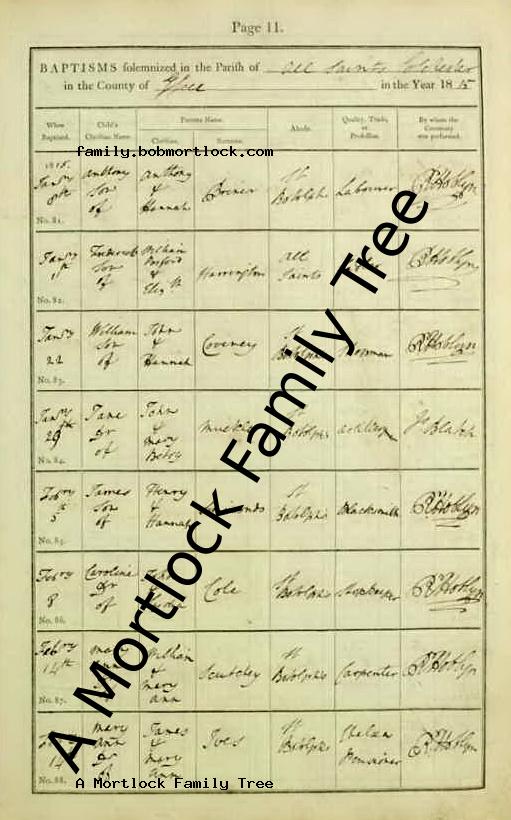 Page 11.
BAPTISMS solemnized in the Parish of All Saints Colchester
in the County of Essex in the Year 1815
When Baptized. Child's Christian Name. Parents Name. Christian. Surname. Abode. Quality, Trade, or Profession. By whom the Ceremony was performed.
family.bobmortlock.com
1815. Jany 8th No. 81. Anthony Son of Anthony & Hannah St Botolphs Labourer R Hoblyn
Jany No. 82. Frederick Son of William & Eliz Harrington All Saints R Hoblyn
Jany 22 No. 83. William Son of John & Hannah Coveney St Botolphs R Hoblyn
Jany 29th No. 84. Jane Dr of John & Mary Betsy St Botolphs Artillery
Febry 5th No. 85. James Son of Henry & Hannah St Botolphs Blacksmith R Hoblyn
Febry 8 No. 86. Caroline Dr of Cole St Botolphs Shopkeeper R Hoblyn
Febry 14th No. 87. Mary William & Mary Ann St Botolphs Carpenter R Hoblyn
14 No. 88. Mary Ann Dr of James & Mary Ann Ives St Botolphs Chelsea Pensioner R Hoblyn
A Mortlock Family Tree
A Mortlock Family Tree